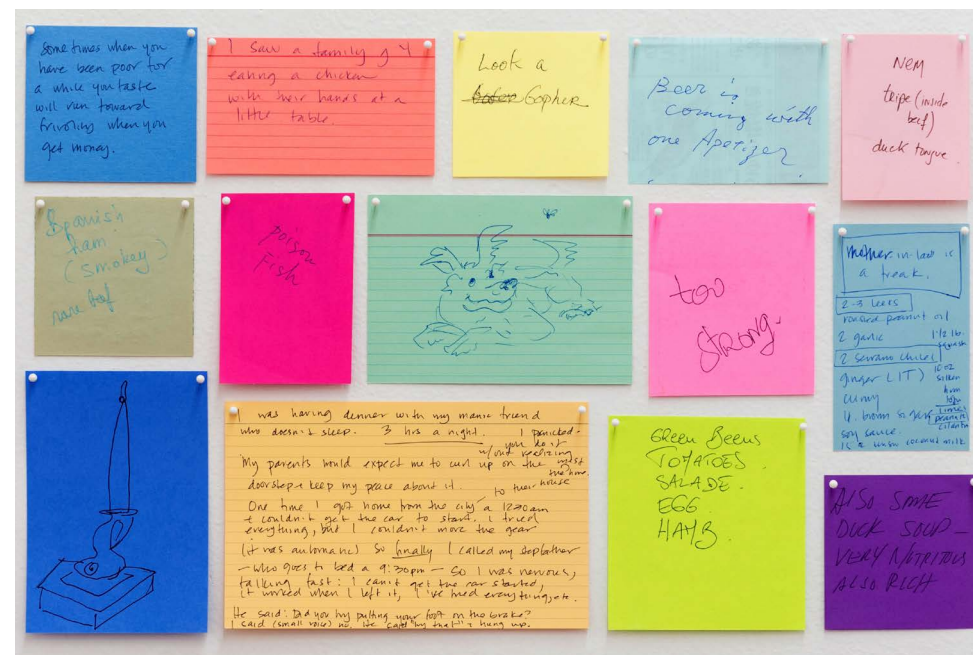 Sometimes when you
have been poor for
a while you taste
will run toward
frivolity when you
get money.
I saw a family of 4
eating a chicken
with their hands at a
little table.
Look a
Gopher
Beer is
coming with
one Apetizer
NEM
tripe (inside
beef)
duck tongue
Spanish
ham
(smokey)
rare beef
poison
Fish
too
strong.
mother-in-law is
a freak.
2-3 leeks
roasted peanut oil
2 garlic
1 1/2 lb.
squash
2 serrano chiles
ginger (1T)
16 oz
silken
curry
4 brown sugar
limes
peanuts
cilantro
soy sauce
coconut milk
I was having denner with my manic friend
who doesn't sleep. 3 hrs a night. I panicked.
you do it
w/out realizing
My parents would expect me to curl up on the
most
the time.
doorstep & keep my peace about it.
to their house
One time I got home from the city @ 1230am
& couldn't get the car to start. I tried
everything, but I couldn't move the gear
(it was automatic) So finally I called my stepbother
— who goes to bed @ 9:30pm — So I was nervous,
talking fast: I can't get the car started,
it worked when I left it, I've tried everything, etc.
He said: Did you try putting your foot on the brake?
I said (small voice) no. He said try that. I hung up.
GREEN Beens
TOMATOES
SALADE.
EGG
HAYB.
ALSO SOME
DUCK SOUP —
VERY NUTRITIOUS
ALSO RICH